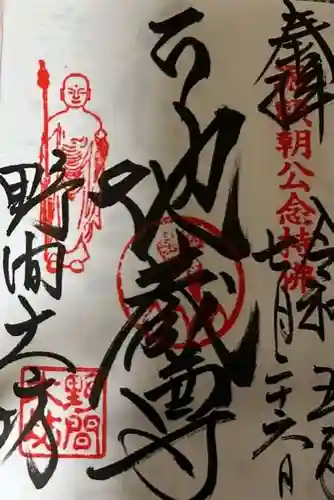 奉拝
頼朝公念持佛
令和五年
七月二十六日
地蔵尊
野間大坊
野間
大坊